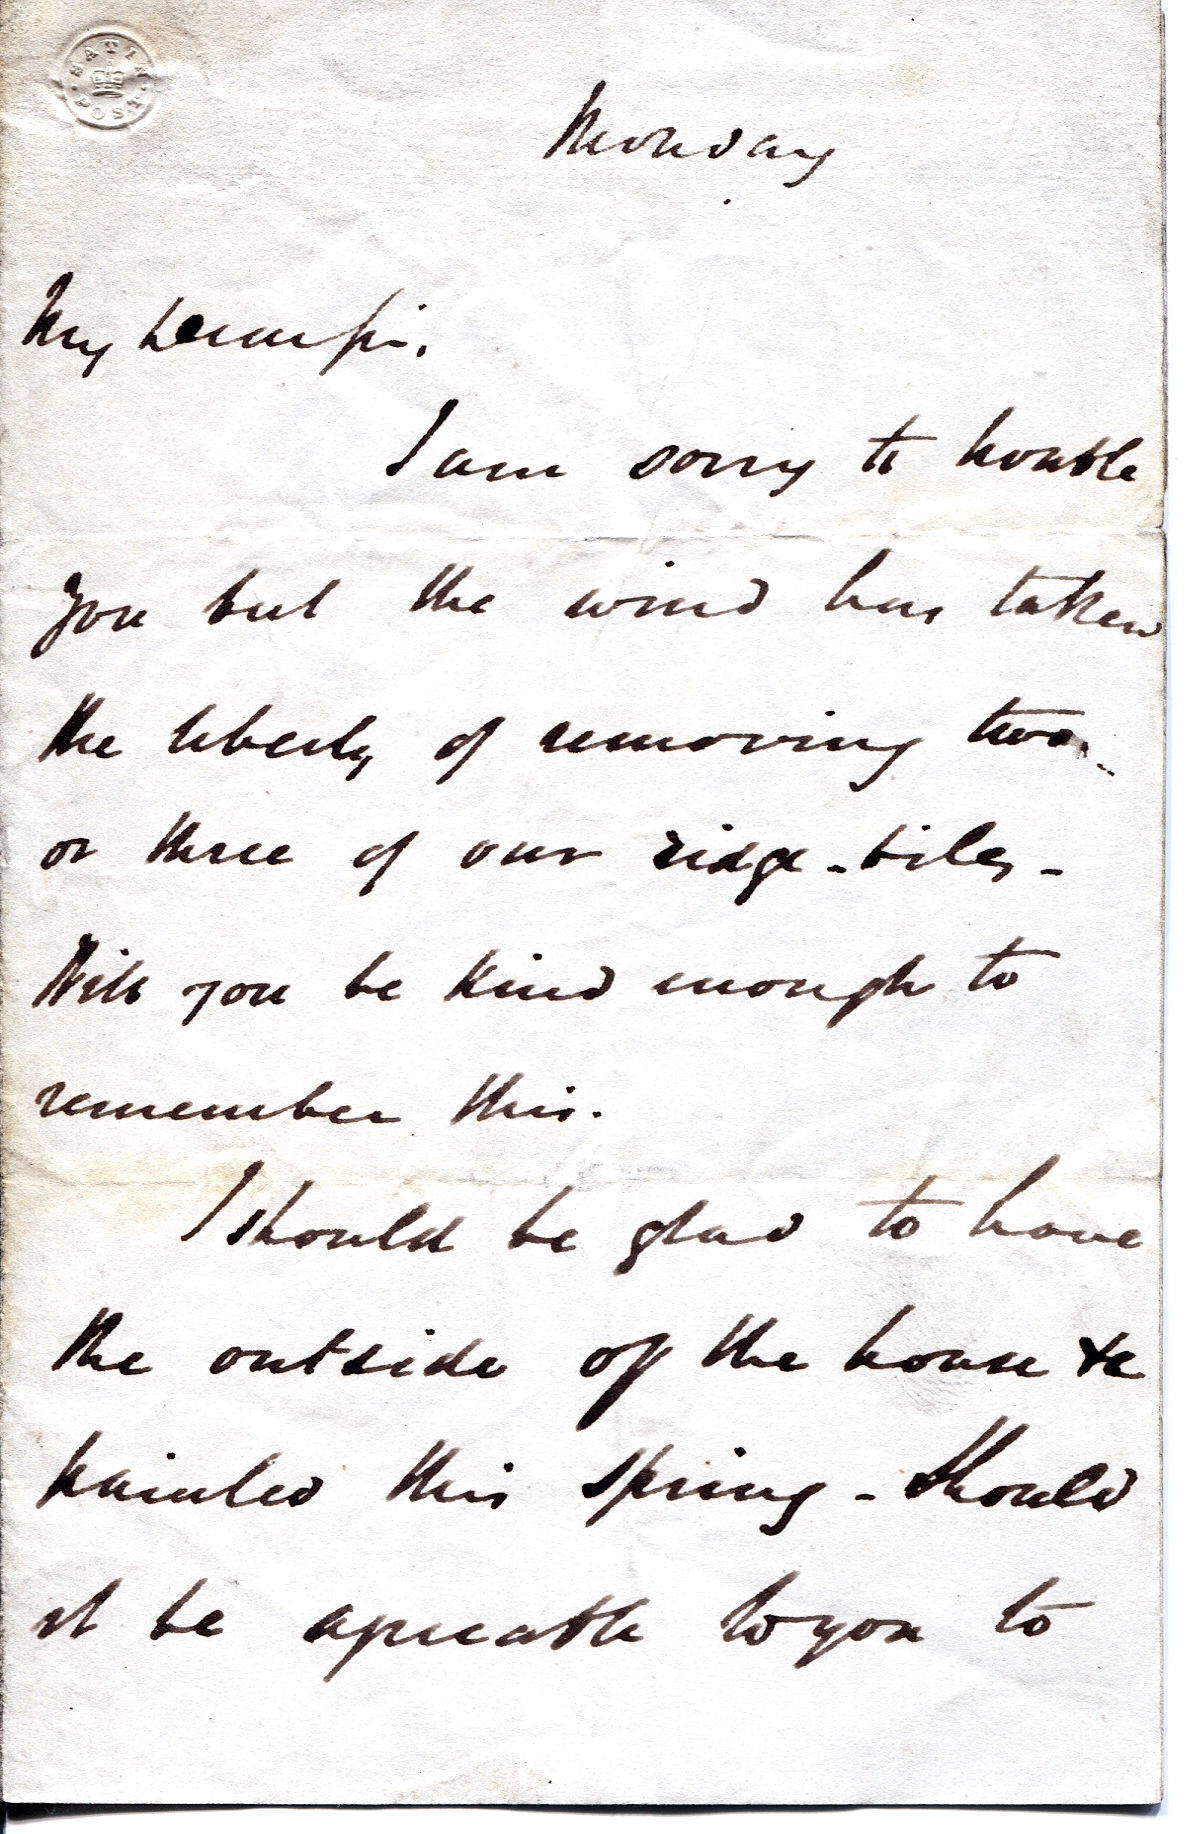 SATIN
POST
Monday
My Dear Sir.
I am sorry to trouble
you but the wind has taken
the liberty of removing two
or three of our ridge-tiles-
Will you be kind enough to
remember this.
I should be glad to have
the outside of the house &c
painted this spring - Should
it be agreeable to you to